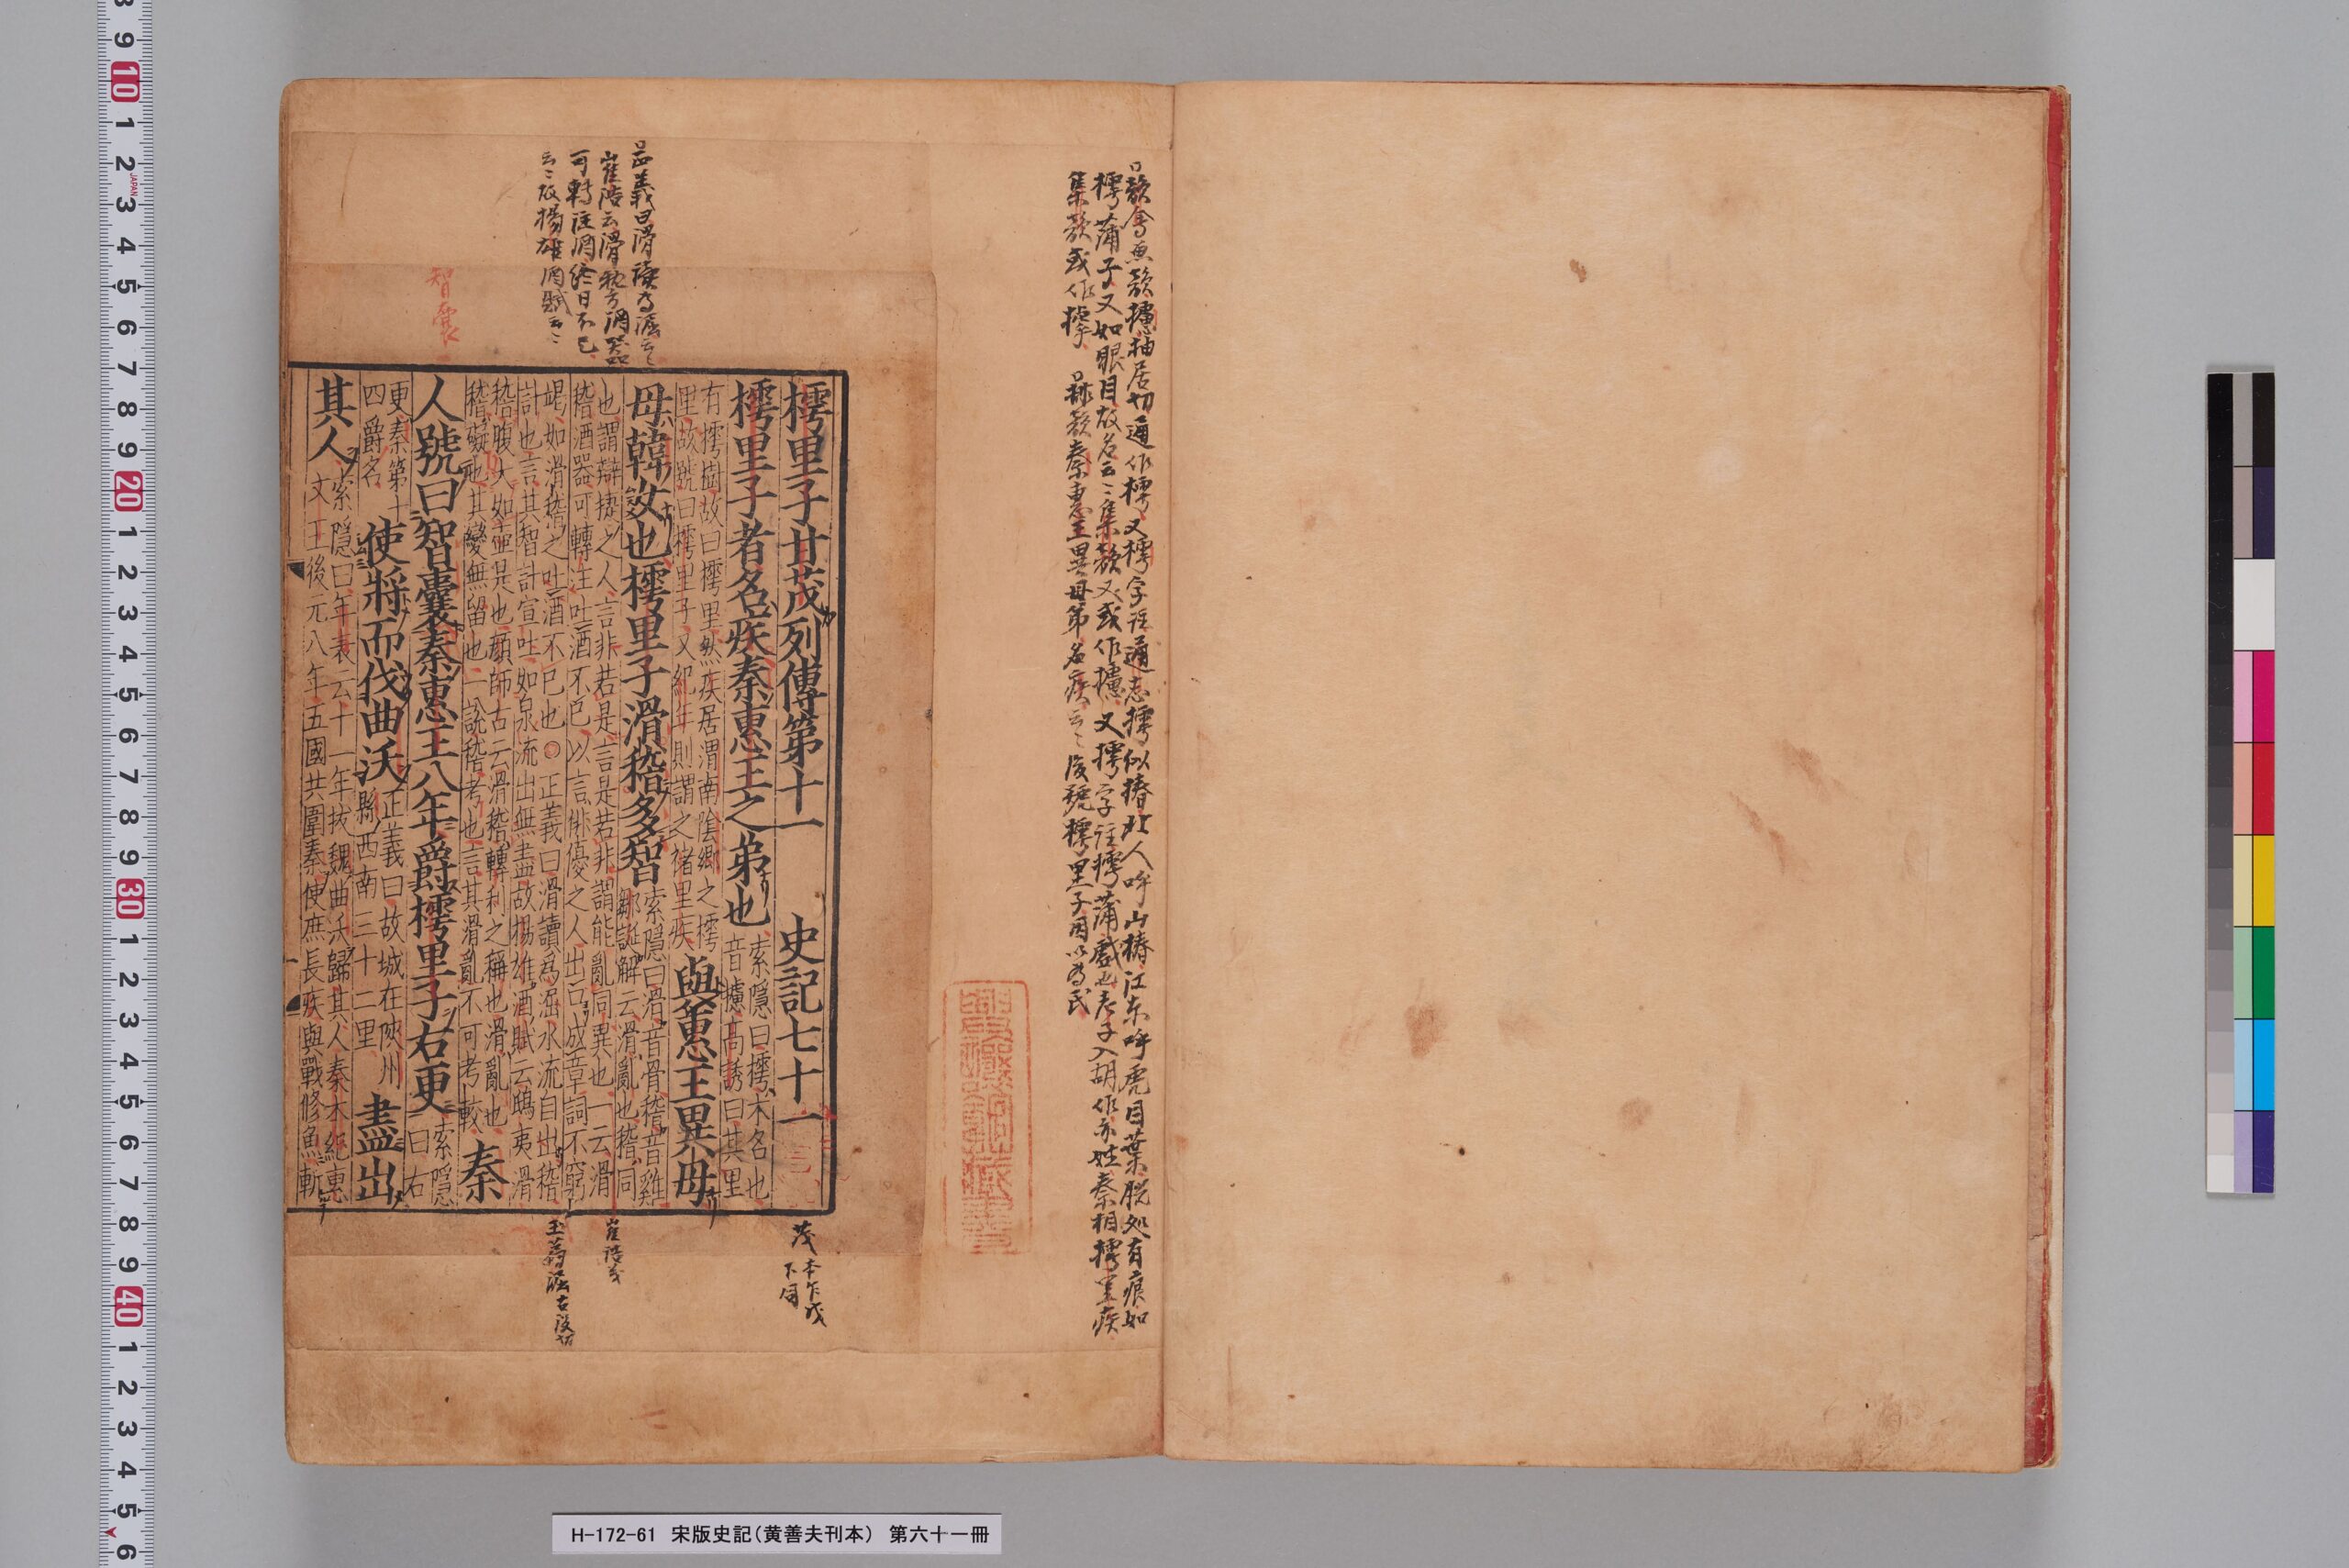 韻會魚韻攄抽居切通作樗又樗字註通志樗似椿北人呼山椿江東呼虎目葉脱処有痕如
樗蒲子又如眼目故名云〻集韻又或作攄又摴字註摴蒲戲也老子入胡作亦姓秦相樗里疾
集韻或作摴 排韻秦惠王異母弟名疾云〻後號樗里子因以為氏
正義曰滑讀為淈云〻
崔浩云滑稽酒器
可轉注酒終日不已
云〻故揚雄酒賦云〻
智囊
樗里子甘茂列傳第十一 史記七十一
樗里子者名疾秦惠王之弟也 索隱曰樗木名也
音攄高誘曰其里
有樗樹故曰樗里然疾居渭南陰鄉之樗
里故號曰樗里子又紀年則謂之褚里疾
與惠王異母
母韓女也樗里子滑稽多智 索隱曰滑音骨稽音雞
鄒誕解云滑亂也稽同
也謂辯捷之人言非若是言是若非謂能亂同異也一云滑
稽酒器可轉注吐酒不已以言俳優之人出口成章詞不窮
竭如滑稽之吐酒不已也○正義曰滑讀為淈水流自出稽
計也言其智計宣吐如泉流出無盡故楊雄酒賦云鴟夷滑
稽腹大如壷是也顔師古云滑稽轉利之稱也滑亂也
稽礙也其變無留也一說稽考也言其滑亂不可考較
秦
人號曰智囊秦惠王八年爵樗里子右更 索隱
曰右
更秦第十
四爵名
使將而伐曲沃 正義曰故城在陝州
縣西南三十二里
盡出
其人 索隱曰年表云十一年拔魏曲沃歸其人秦本紀惠
文王後元八年五國共圍秦使庶長疾與戰修魚斬
茂 本乍戊
下同
崔浩
玉篇淈古没切
H-172-61 宋版史記(黄善夫刊本) 第六十一冊